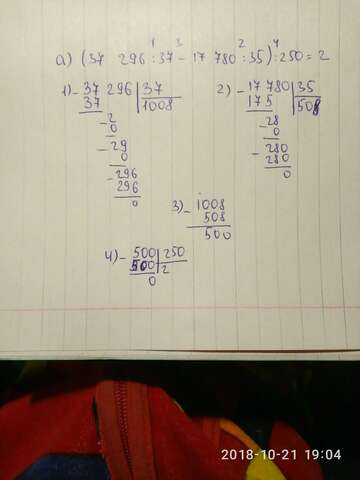 1 3 2 4
а) (37 296 : 37 - 17 780 : 35) : 250 = 2
1) - 37 296 | 37
37 | 1008
- 2
0
- 29
0
- 296
296
0
2) - 17 780 | 35
175 | 508
- 28
0
- 280
280
0
3) - 1008
508
500
4) - 500 | 250
500 | 2
0
2018-10-21 19:04